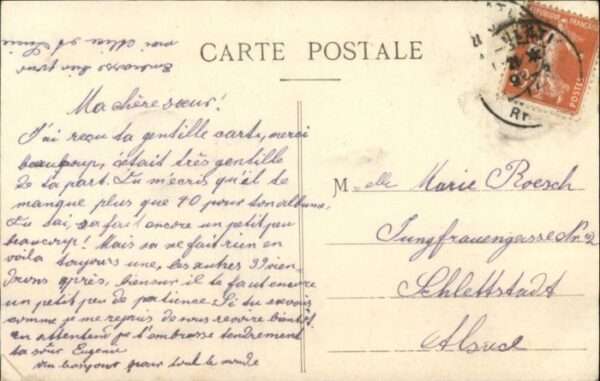 CARTE POSTALE
Embrasse bien pour
moi Alice et
Ma chère sœur!
J'ai reçu ta gentille carte, merci
beaucoup, c'était très gentille
de ta part. Tu m'écris qu'il te
manque plus que 40 pour ton albume.
Tu sai, sa fait encore un petit peu
beaucoup! Mais sa ne fait rien en
voila toujours une, les autres 39 vien-
drons après, biensur il te faut encore
un petit peu de patience. Si tu savais
comme je me rejouis de vous revoire bientôt.
en attendend je t'embrasse tendrement
ta sœur Eugenie
un bonjour pour tout le monde
Melle Marie Roesch
Jungfrauengasse Nr. 2
Schlettstadt
Alsace
POSTES